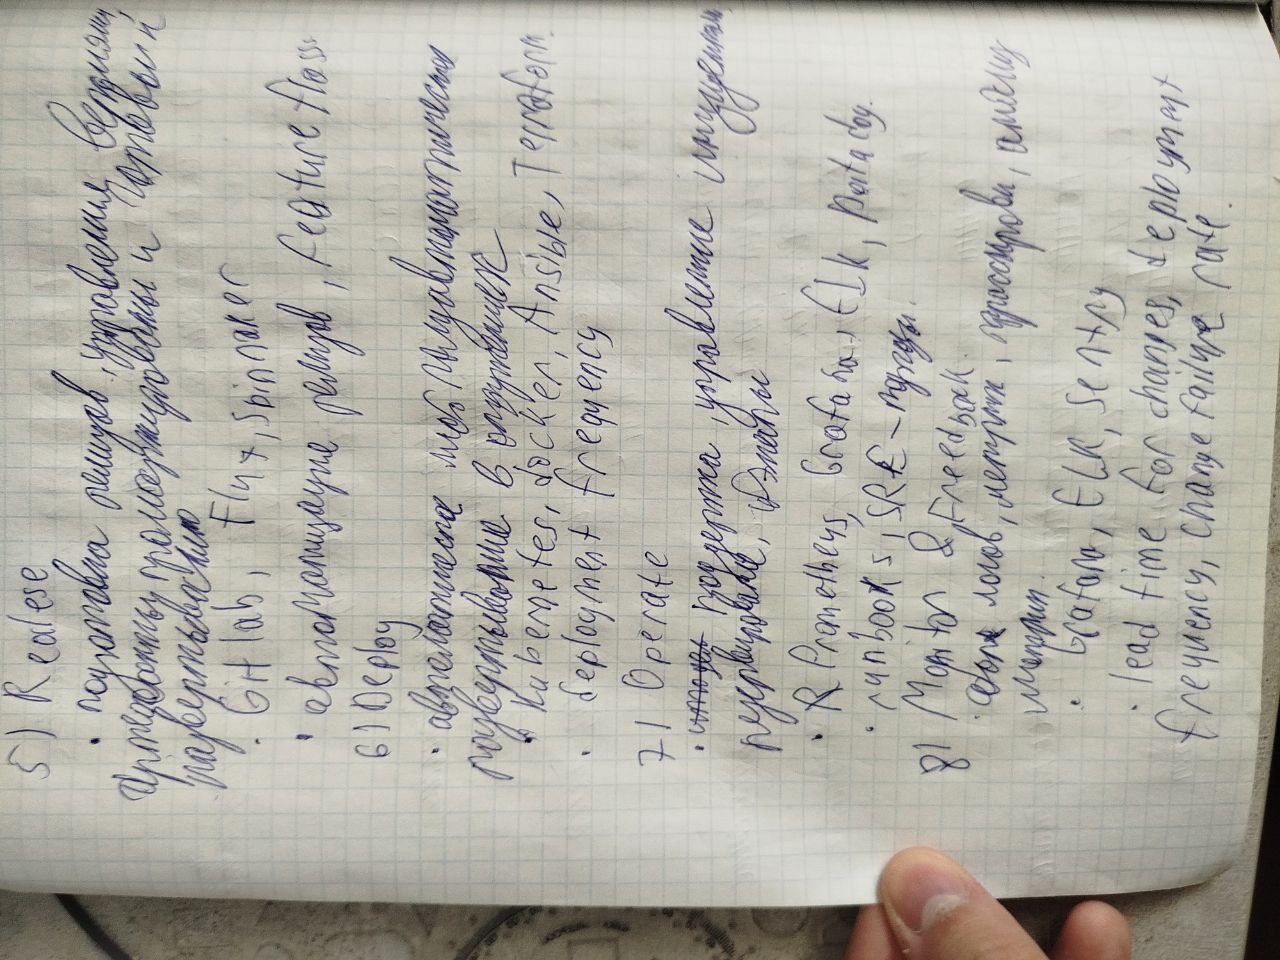 5) Realese
• подготовка релизов, управления версиями,
Артефакты протестированы и готовый
развертыванию
• Gitlab, Flux, Spinnaker
• автоматизация релизов, feature flags
6) Deploy
• автоматическое
развертывание в окружениях
• Kubernetes, docker, Ansible, Terraform.
• deployment frequency
7) Operate
• поддержка, управление инцидентами,
резервирование,
• R Prometheys, Grafana, ELk,
• runbooks, SRE-
8) Monitor & Freedback.
• логов, метрик, трассировки, анализ
метрик.
• Grafana, ELK, Sentry
• lead time for changes, deployment
frequency, change failure rate.